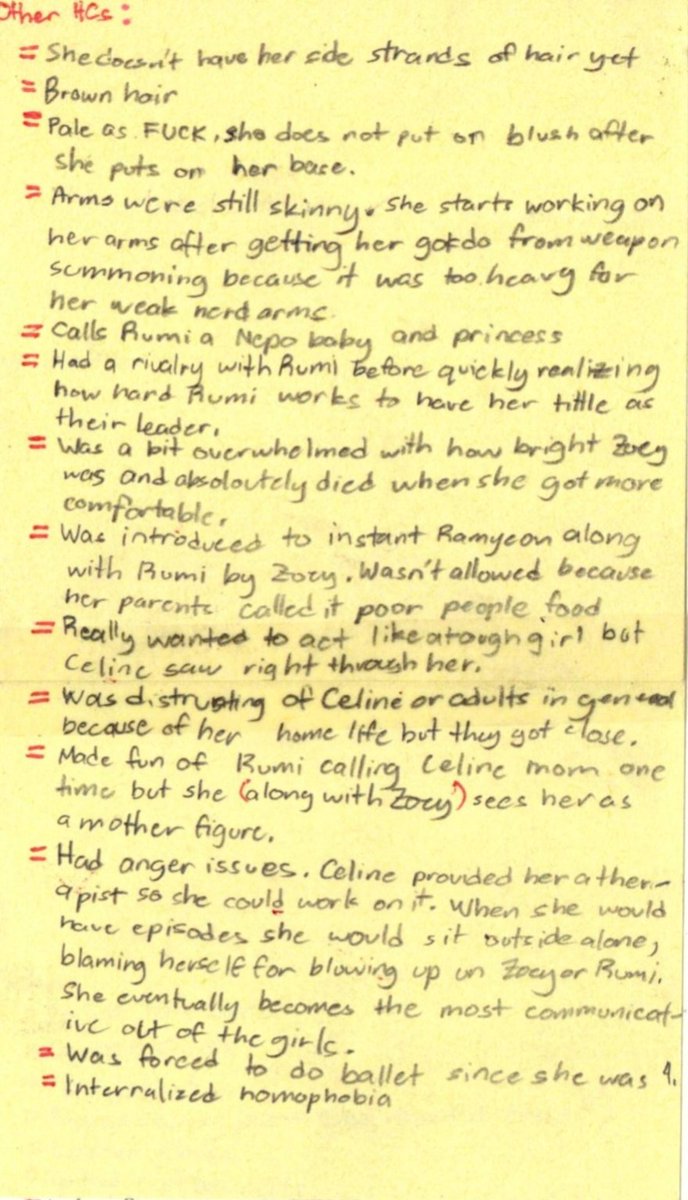 Other HCs:
= She doesn't have her side strands of hair yet
= Brown hair
= Pale as FUCK, she does not put on blush after
she puts on her base.
= Arms were still skinny. She starts working on
her arms after getting her gokdo from weapon
summoning because it was too heavy for
her weak nerd arms.
= Calls Rumi a Nepo baby and princess
= Had a rivalry with Rumi before quickly realizing
how hard Rumi works to have her tittle as
their leader.
= Was a bit overwhelmed with how bright Zoey
was and absoloutely died when she got more
comfortable.
= Was introduced to instant Ramyeon along
with Rumi by Zoey. Wasn't allowed because
her parents called it poor people food
= Really wanted to act like a tough girl but
Celine saw right through her.
= Was distrusting of Celine or adults in general
because of her home life but they got close.
= Made fun of Rumi calling Celine mom one
time but she (along with Zoey) sees her as
a mother figure.
= Had anger issues. Celine provided her a ther-
apist so she could work on it. When she would
have episodes she would sit outside alone,
blaming herself for blowing up on Zoey or Rumi.
She eventually becomes the most communicat-
ive out of the girls.
= Was forced to do ballet since she was 4.
= Internalized homophobia